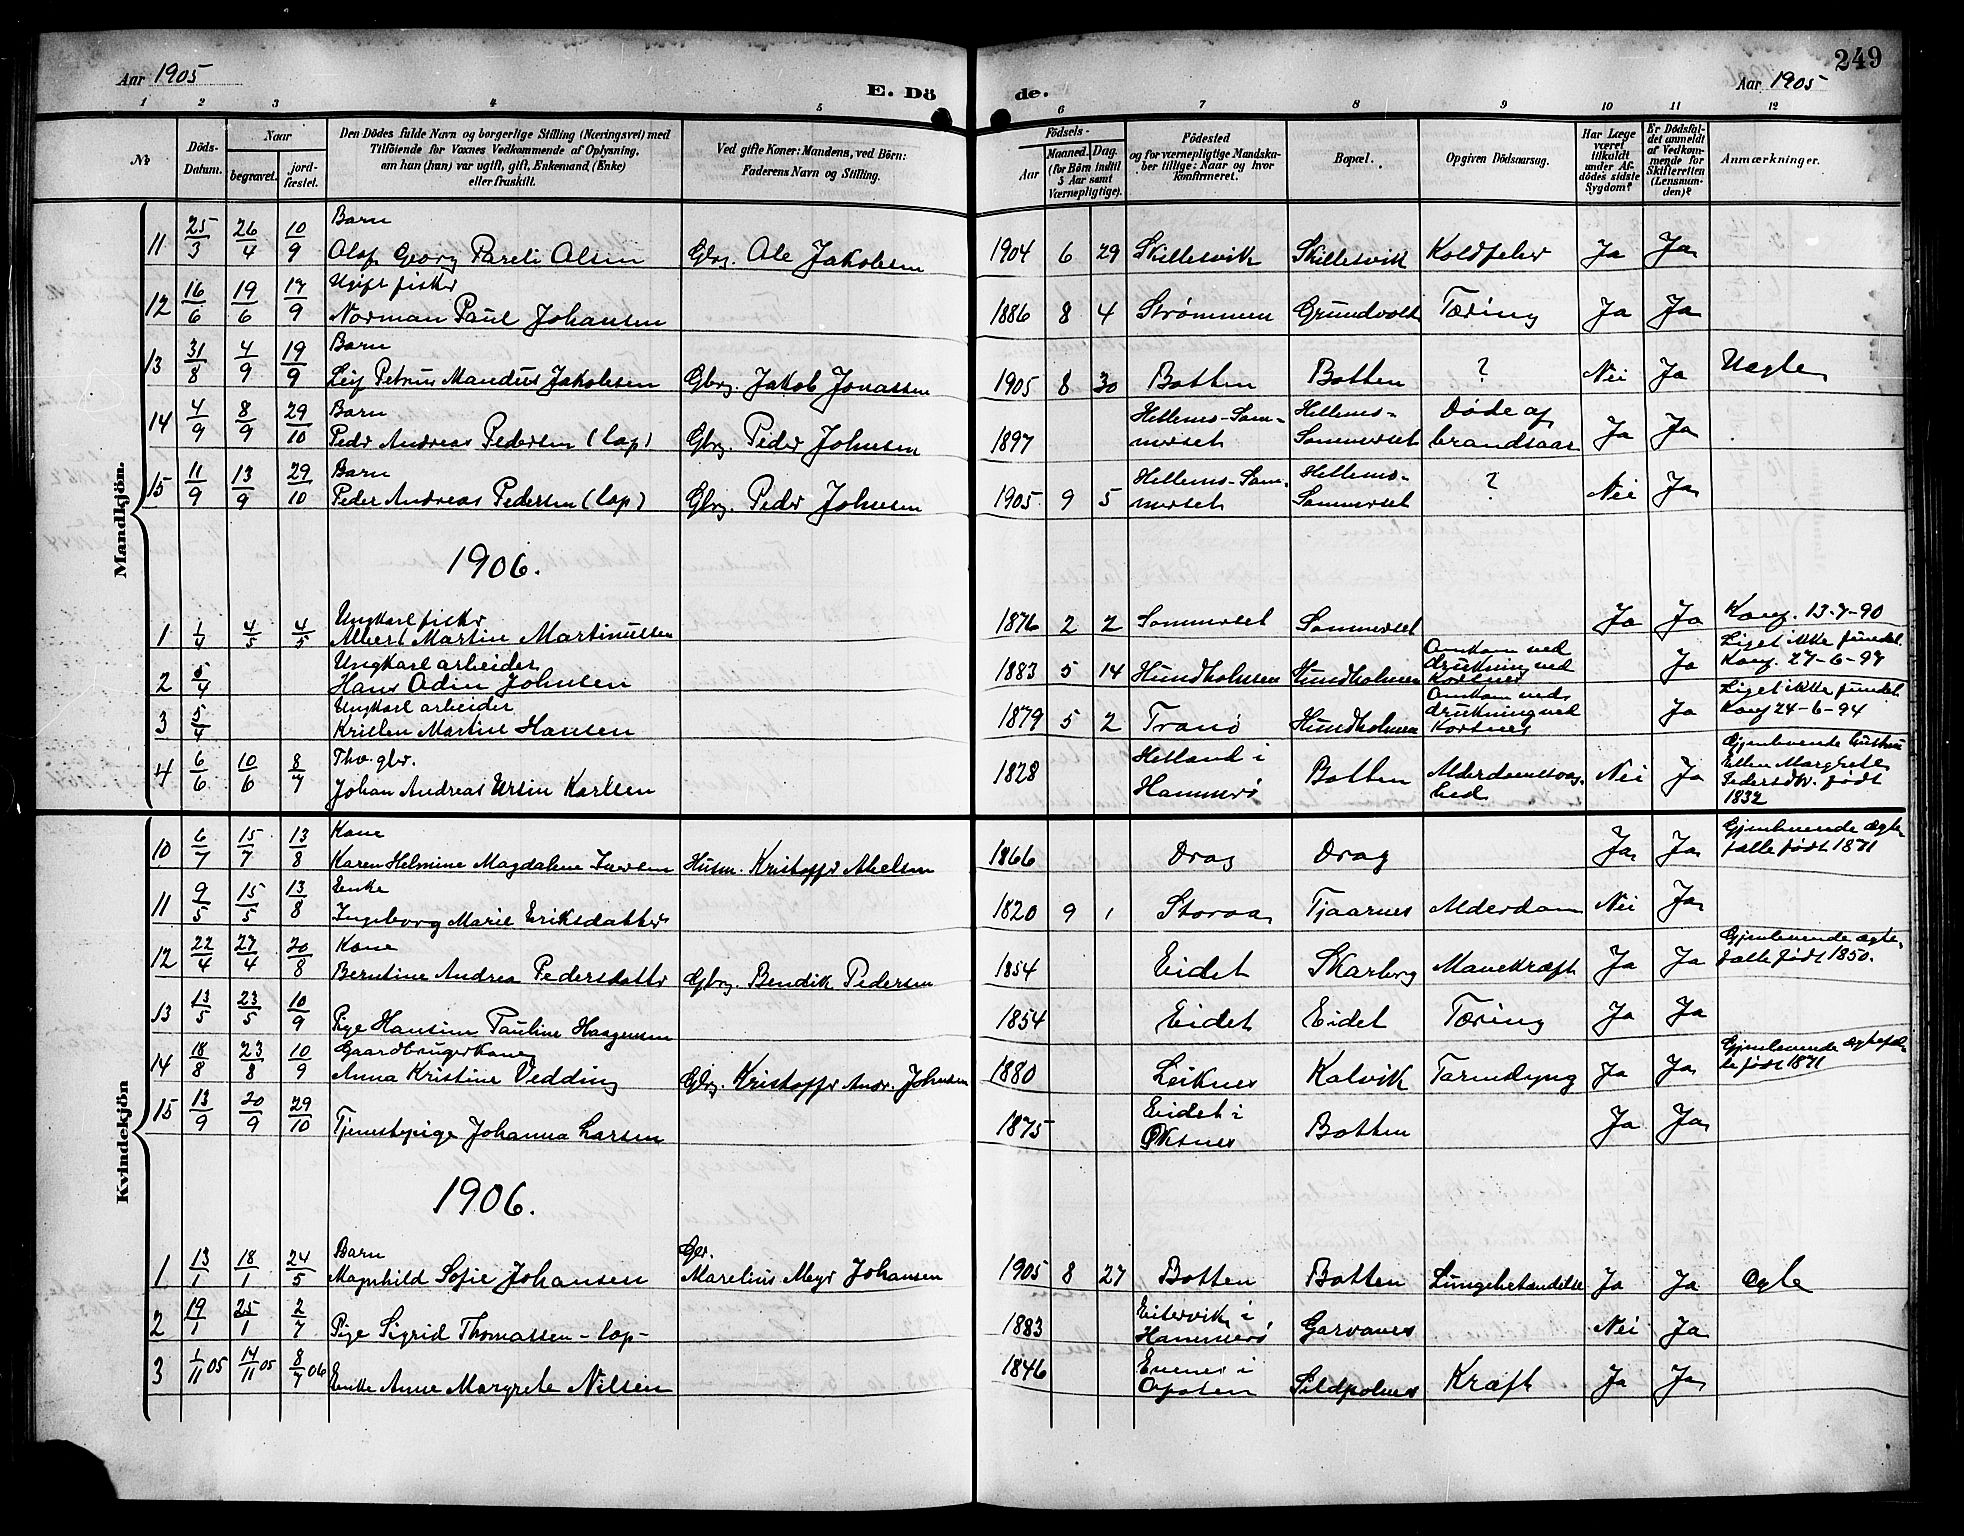 249
Aar 1905
E. Dö
de.
Aar 1905
1 2 3 4 5 6 7 8 9 10 11 12
No
Döds-
Datum.
Naar
begravet.
jord-
fæstet.
Den Dödes fulde Navn og borgerlige Stilling (Næringsvei) med
Tilföiende for Voxnes Vedkommende af Oplysning,
om han (hun) var ugift, gift, Enkemand, (Enke)
eller fraskilt.
Ved gifte Koner: Mandens, ved Börn:
Faderens Navn og Stilling.
Födsels-
Aar
Maaned. Dag.
(for Börn indtil
5 Aar samt
Værnepligtige).
Födested
og for værnepligtige Mandska-
ber tillige: Naar og hvor
konfirmeret.
Bopæl.
Opgiven Dödsaarsag.
Har Læge
været
tilkaldt
under Af-
dödes sidste
Sygdom?
Er Dödsfal-
det anmeldt
af Vedkom-
mende for
Skifteretten
(Lensman-
den)?
Anmærkninger.
Mandkjön.
Barn
11 25/3 26/4 10/9 Olaf Georg Pareli Olsen Gbrg. Ole Jakobsen 1904 6 29 Skillesvik Skillesvik Koldfeber Ja Ja
Ugift fisker
12 16/6 19/6 17/9 Norman Paul Johansen 1886 8 4 Strømmen Grundvold Tæring Ja Ja
Barn
13 31/8 4/9 19/9 Leif Petrus Mandus Jakobsen Gbrg. Jakob Jonassen 1905 8 30 Botten Botten ? Nei Ja Uegte
Barn
14 4/9 8/9 29/10 Peder Andreas Pedersen (lap) Gbrg. Peder Johnsen 1897 Hellemo-Som-
merset Hellemo-
Sommerset Døde af
brandsaar Ja Ja
Barn
15 11/9 13/9 29/10 Peder Andreas Pedersen (lap) Gbrg. Peder Johnsen 1905 9 5 Hellemo-Som-
merset Hellemo-
Sommerset ? Nei Ja
1906.
Ungkarl fisker
1 1/4 4/5 4/5 Albert Martin Martinussen 1876 2 2 Sommerset Sommerset Ja Ja Konf. 13-7-90
Ungkarl arbeider
2 5/4 Hans Odin Johnsen 1883 5 14 Hundholmen Hundholmen Omkom ved
drukning ved
Korsnes Ja Liget ikke fundet.
Konf. 27-6-97
Ungkarl arbeider
3 5/4 Kristen Martin Hansen 1879 5 2 Tranö Hundholmen Omkom ved
drukning ved
Korsnes Ja Liget ikke fundet
Konf 24-6-94
Fhv. gbr.
4 6/6 10/6 8/7 Johan Andreas Ursin Karlsen 1828 Helland i
Hammerø Botten Alderdomssvag-
hed Nei Ja Gjenlevende hustru
Ellen Margrete
Pedersdtr. født
1832
Kvindekjön
Kone
10 6/7 15/7 13/8 Karen Helmine Magdalene Iversen Husm. Kristoffer Abelsen 1866 Drag Drag Ja Ja Gjenlevende ægte-
fælle født 1871
Enke
11 9/5 15/5 13/8 Ingeborg Marie Eriksdatter 1820 9 1 Storaa Tjaarnes Alderdom Nei Ja
Kone
12 22/4 27/4 20/8 Berntine Andrea Pedersdatter Gbrg. Bendik Pedersen 1854 Eidet Skarberg Mavekræft Ja Ja Gjenlevende ægte-
fælle født 1850.
13 13/5 23/5 10/9 Pige Hansine Pauline Haagensen 1854 Eidet Eidet Tæring Ja Ja
Gaardbrugerkone
14 18/8 23/8 10/9 Anna Kristine Vedding Gbrg. Kristoffer Andr. Johnsen 1880 Leiknes Kalvik Tarmslyng Ja Ja Gjenlevende ægtefæl-
le født 1871
15 13/9 20/9 29/10 Tjenestepige Johanna Larsen 1875 Eidet i
Øksnes Botten Ja Ja
1906.
Barn
1 13/1 18/1 24/5 Magnhild Sofie Johansen Gbr.
Marelius Meyer Johansen 1905 8 27 Botten Botten Lungebetændelse Ja Ja Ægte
2 19/1 25/1 2/7 Pige Sigrid Thomassen - lap - 1883 Eitervik i
Hammerø Garvanes Nei Ja
3 1/11 05 14/11 05 8/7 06 Enke Anne Margrete Nilsen 1846 Evenes i
Ofoten Sildpolnes Kræft Ja Ja